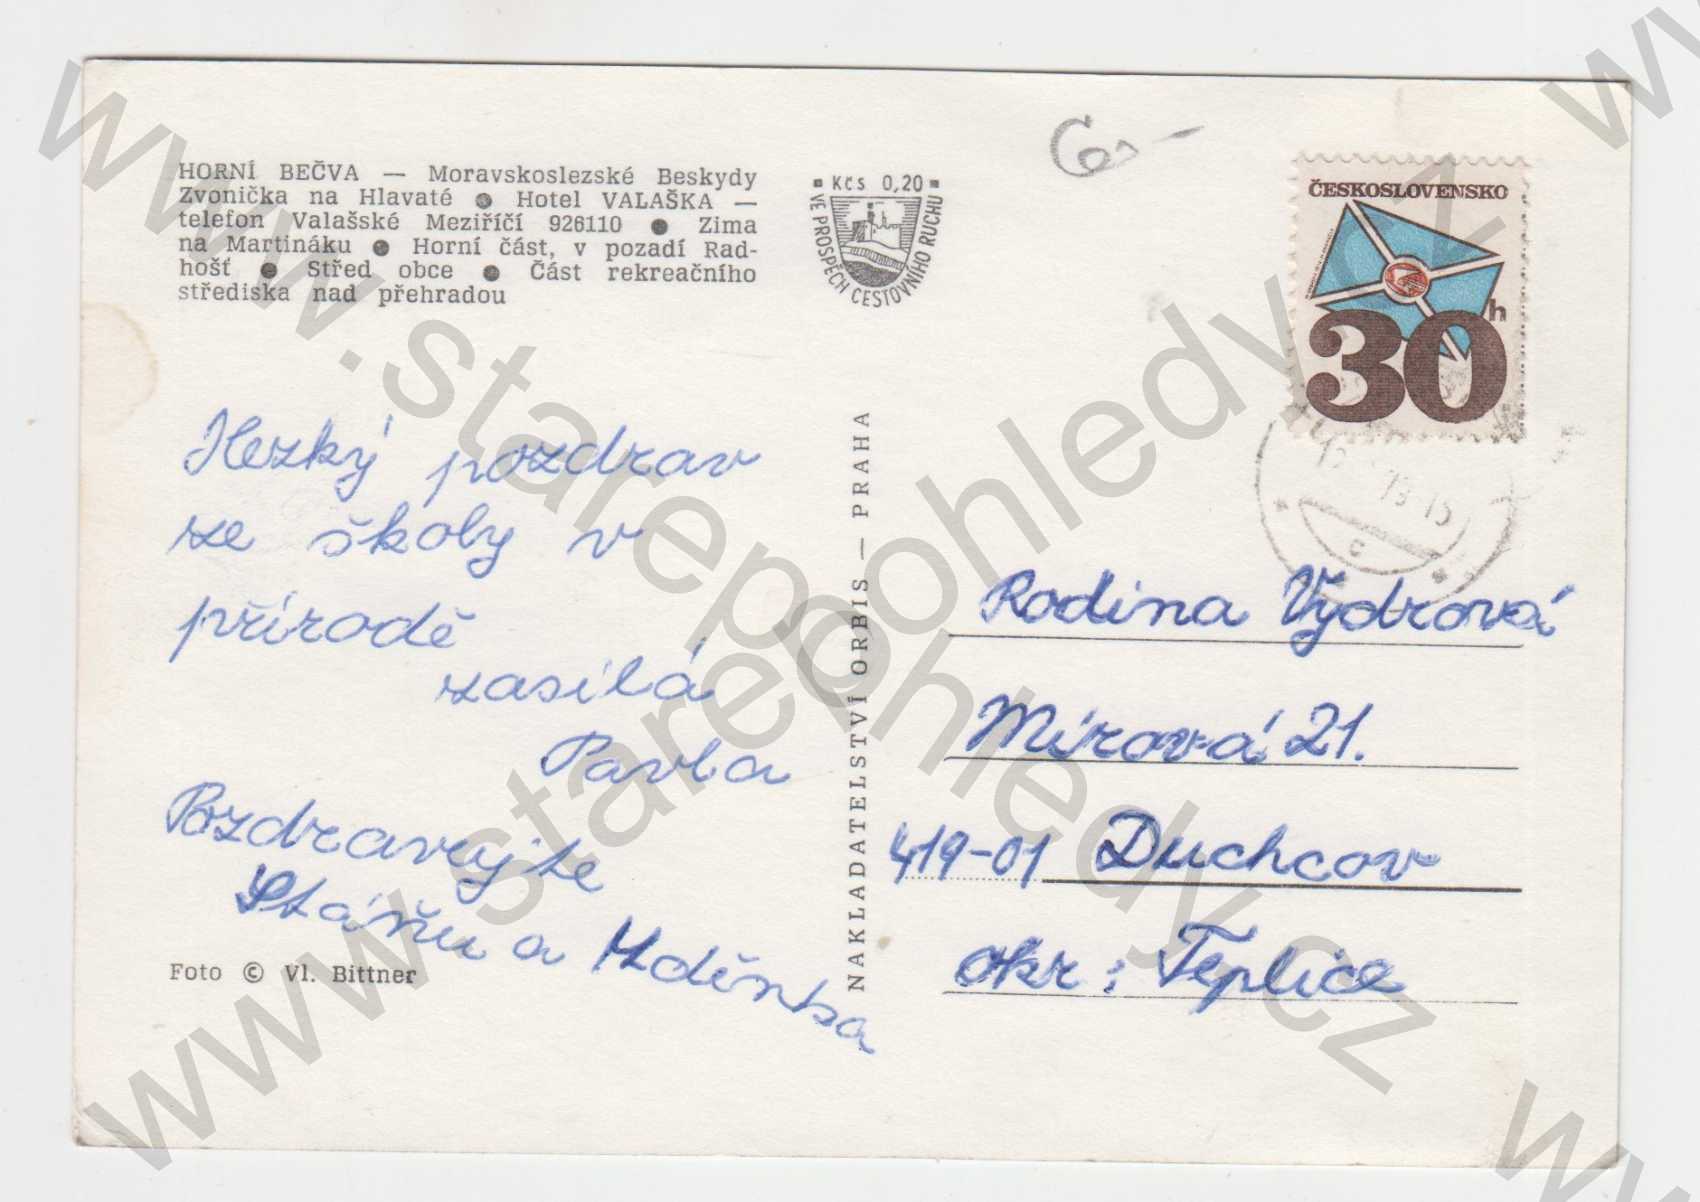 HORNÍ BEČVA — Moravskoslezské Beskydy
Zvonička na Hlavaté ● Hotel VALAŠKA —
telefon Valašské Meziříčí 926110 ● Zima
na Martináku ● Horní část, v pozadí Rad-
hošť ● Střed obce ● Část rekreačního
střediska nad přehradou
Kčs 0,20
VE PROSPĚCH CESTOVNÍHO RUCHU
ČESKOSLOVENSKO
30h
Hezký pozdrav
ze školy v
přírodě
zasílá
Pavla
Pozdravujte
Stáňu a Zděnka
Foto © Vl. Bittner
NAKLADATELSTVÍ ORBIS — PRAHA
Rodina Vydrová
Mírová 21.
419-01 Duchcov
okr: Teplice
www.starepohledy.cz
www.starepohledy.cz